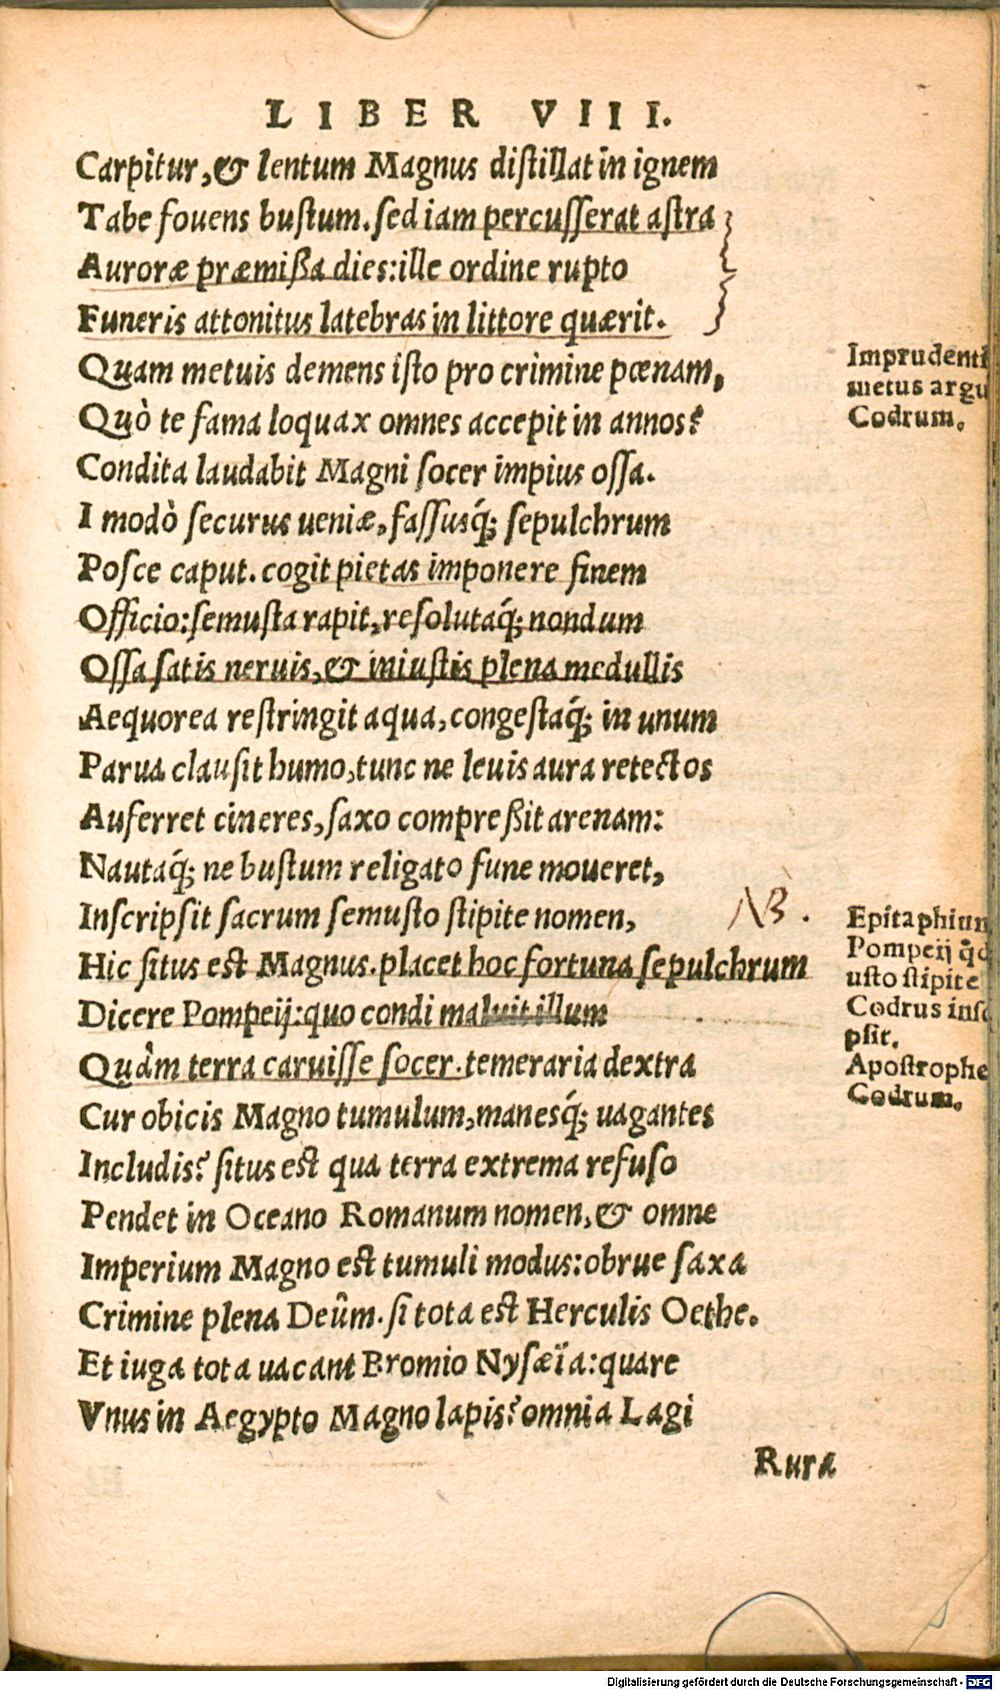 LIBER VIII.
Carpitur, & lentum Magnus distillat in ignem
Tabe fouens bustum. sed iam percusserat astra
Auroræ præmißa dies: ille ordine rupto
Funeris attonitus latebras in littore quærit.
Quam metuis demens isto pro crimine pœnam,
Quò te fama loquax omnes accepit in annos?
Condita laudabit Magni socer impius ossa.
I modò securus ueniæ, fassusq́; sepulchrum
Posce caput. cogit pietas imponere finem
Officio: semusta rapit, resolutaq́; nondum
Ossa satis neruis, & iniustis plena medullis
Aequorea restringit aqua, congestaq́; in unum
Parua clausit humo, tunc ne leuis aura retectos
Auferret cineres, saxo compreßit arenam:
Nautaq́; ne bustum religato fune moueret,
Inscripsit sacrum semusto stipite nomen,
Hic situs est Magnus. placet hoc fortuna sepulchrum
Dicere Pompeij: quo condi maluit illum
Quàm terra caruisse socer. temeraria dextra
Cur obicis Magno tumulum, manesq́; uagantes
Includis? situs est qua terra extrema refuso
Pendet in Oceano Romanum nomen, & omne
Imperium Magno est tumuli modus: obrue saxa
Crimine plena Deûm. si tota est Herculis Oethe.
Et iuga tota uacant Bromio Nysæïa: quare
Vnus in Aegypto Magno lapis? omnia Lagi
Rura
Imprudenti
metus argu
Codrum.
NB.
Epitaphium
Pompeij
usto stipite
Codrus insc
psit.
Apostrophe
Codrum.
Digitalisierung gefördert durch die Deutsche Forschungsgemeinschaft - DFG